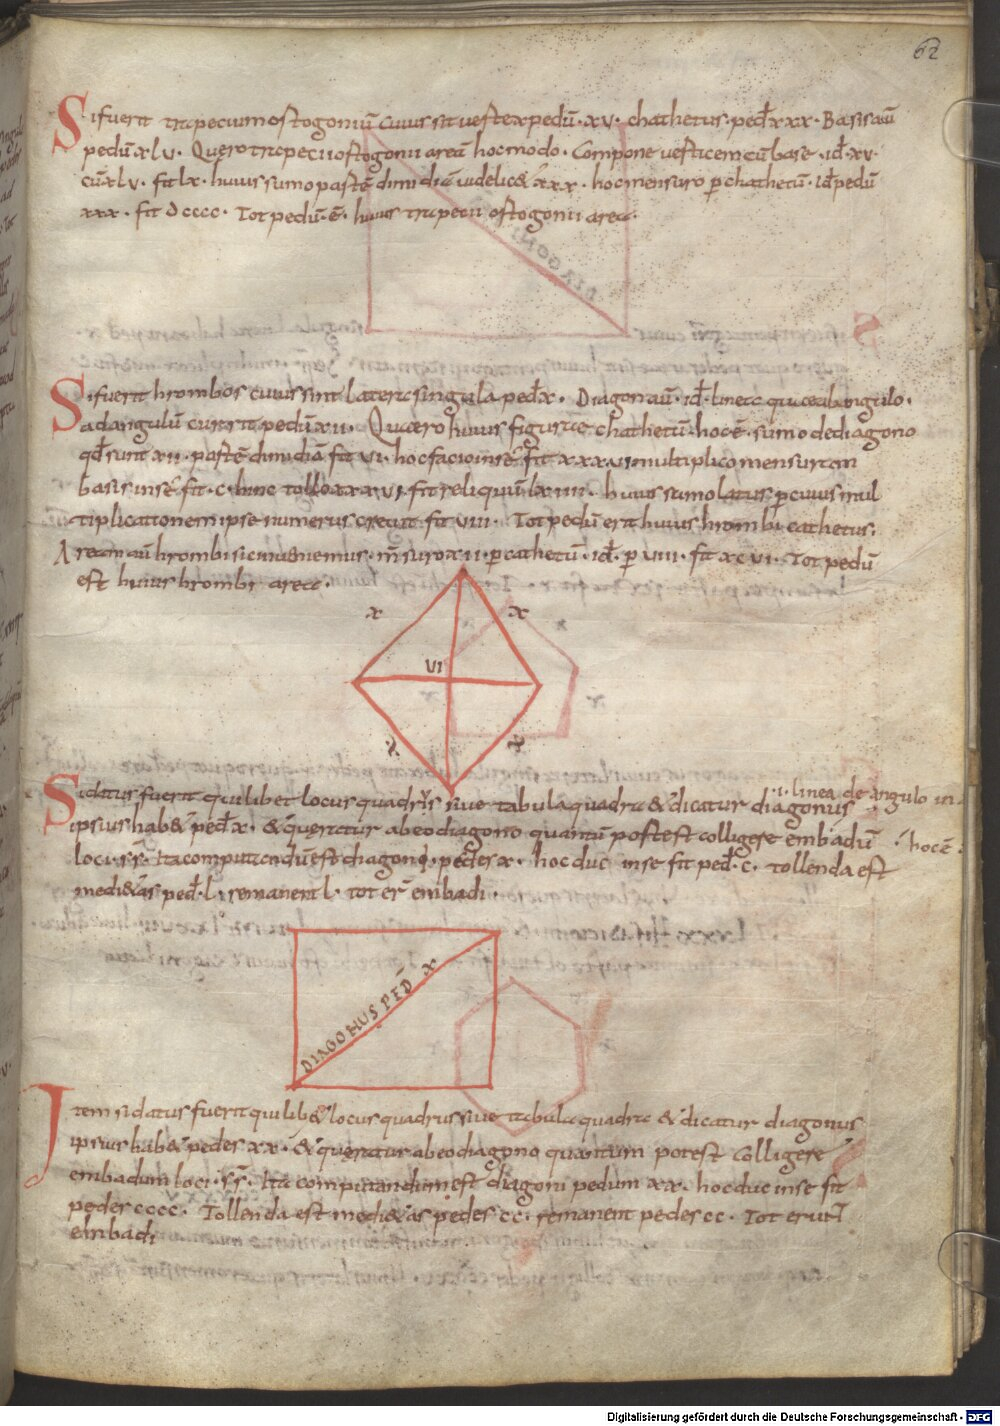 62
Si fuerit trapecium ortogoniū cuius sit uertex pedū · xv · chathetus · ped̄ xxx · Basis aū
pedū xlv · Quero trapecii ortogonii areā hoc modo · Compone uerticem cū base · id̄ · xv ·
cū xlv · fit lx · huius sumo partē dimidiā uidelic& xxx · hoc mensuro p chathetū · id̄ pedū
xxx · fit dcccc · Tot pedū · ē · huius trapecii ortogonii area ·
DIAGONI
Si fuerit hrombos cuius sint latera singula ped̄ x · Diagon aū · id̄ · linea quae ab angulo ·
ad angulū currit pedū xii · Quaero huius figurae chathetū · hoc ē · sumo de diagono
qd̄ sunt xii · partē dimidiā fit vi · hoc facio in se · fit xxxvi multiplico mensuram
basis in se fit · c · hinc tollo xxxvi · fit reliquiū lxiiii · huius sumo latus p cuius mul
tiplicationem ipse numerus creuit fit viii · Tot pedū erit huius hrombi cathetus ·
Aream aū hrombi sic inueniemus · m̄suro xii · p cathetū · id̄ · p viii · fit xcvi · Tot pedū
est huius hrombi area ·
x x
VI
x x
Si datus fuerit qui libet locus quadrus siue tabula quadra & dicatur diagonus · i · linea de angulo in
ipsius hab& ped̄ x · & queratur ab eo diagono quantū potest colligere embadū · hoc ē ·
loci · ss̄ · Ita computandū est diagoni · pedes x · hoc duc in se fit ped̄ · c · tollenda est
medi&as ped̄ · l · remanent l · tot er̄ embadi ·
DIAGONUS PED̄ X
Item si datus fuerit qui lib& locus quadrus siue tabula quadra & dicatur diagonus
ipsius hab& pedes xx · & queratur ab eo diagono quantum potest Colligere
embadum loci · ss̄ · Ita computandum est diagoni pedum xx · hoc duc in se fit
pedes cccc · Tollenda est medi&as pedes cc · remanent pedes cc · Tot erunt
embadi
Digitalisierung gefördert durch die Deutsche Forschungsgemeinschaft - DFG